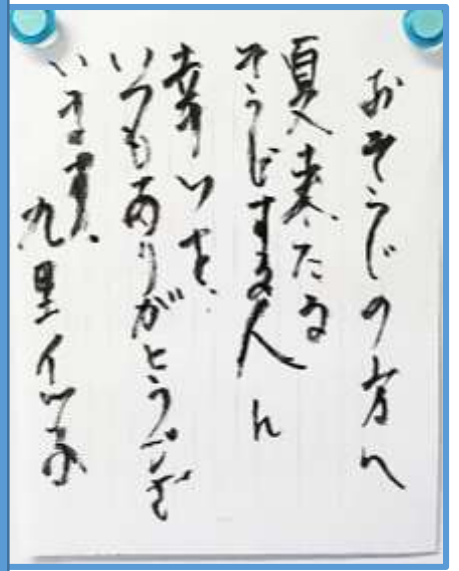 おそうじの方へ
夏来たる
そうじする人に
幸いを
いつもありがとうござ
います 九里